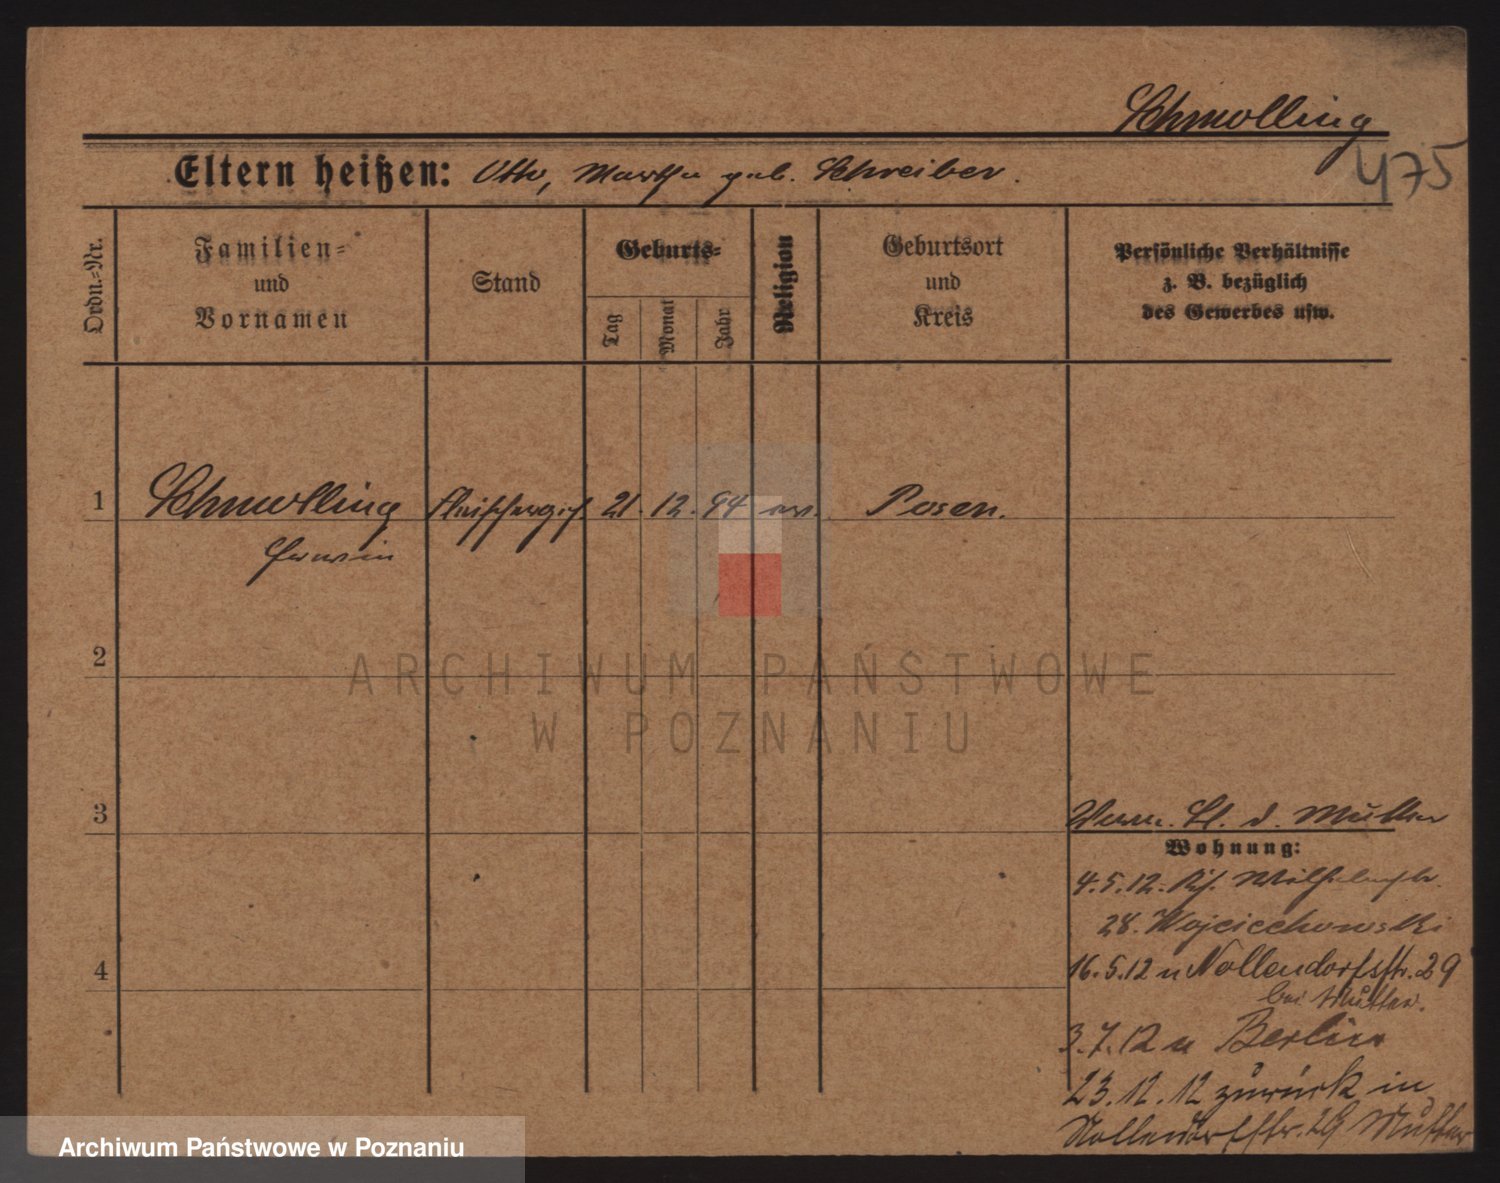 Schmolling
475
Eltern heißen: Otto, Martha geb. Schreiber.
Ordn.-Nr.
Familien-
und
Vornamen
Stand
Geburts-
Tag
Monat
Jahr
Religion
Geburtsort
und
Kreis
Persönliche Verhältnisse
z. B. bezüglich
des Gewerbes usw.
1 Schmolling Fleischerges. 21. 12. 94 ev. Posen.
Erwin
2
ARCHIWUM PAŃSTWOWE
W POZNANIU
3
d. Mutter
Wohnung:
4.5.12.
28. Wojciechowski
4
16.5.12 n Nollendorfstr. 29
bei Mutter.
3.7.12 n Berlin
23.12.12 zurück in
Nollendorfstr. 29 Mutter
Archiwum Państwowe w Poznaniu